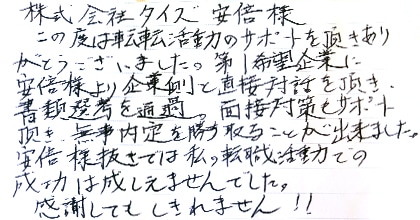 株式会社タイズ 安倍様
この度は転転活動のサポートを頂きあり
がとうございました。第1希望企業に
安倍様より企業側と直接対話を頂き、
書類選考を通過。面接対策もサポート
頂き、無事内定を勝ち取ることが出来ました。
安倍様抜きでは私の転職活動での
成功は成しえませんでした。
感謝してもしきれません!!